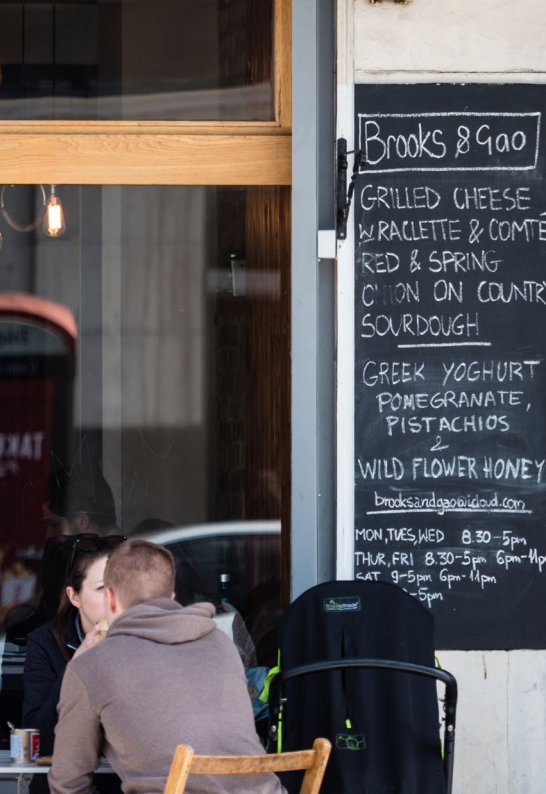 Brooks & Gao
GRILLED CHEESE
W RACLETTE & COMTÉ
RED & SPRING
ONION ON COUNTRY
SOURDOUGH
GREEK YOGHURT
POMEGRANATE,
PISTACHIOS
&
WILD FLOWER HONEY
brooksandgao@icloud.com
MON, TUES, WED 8.30-5pm
THUR, FRI 8.30-5pm 6pm-11pm
SAT 9-5pm 6pm-11pm
-5pm